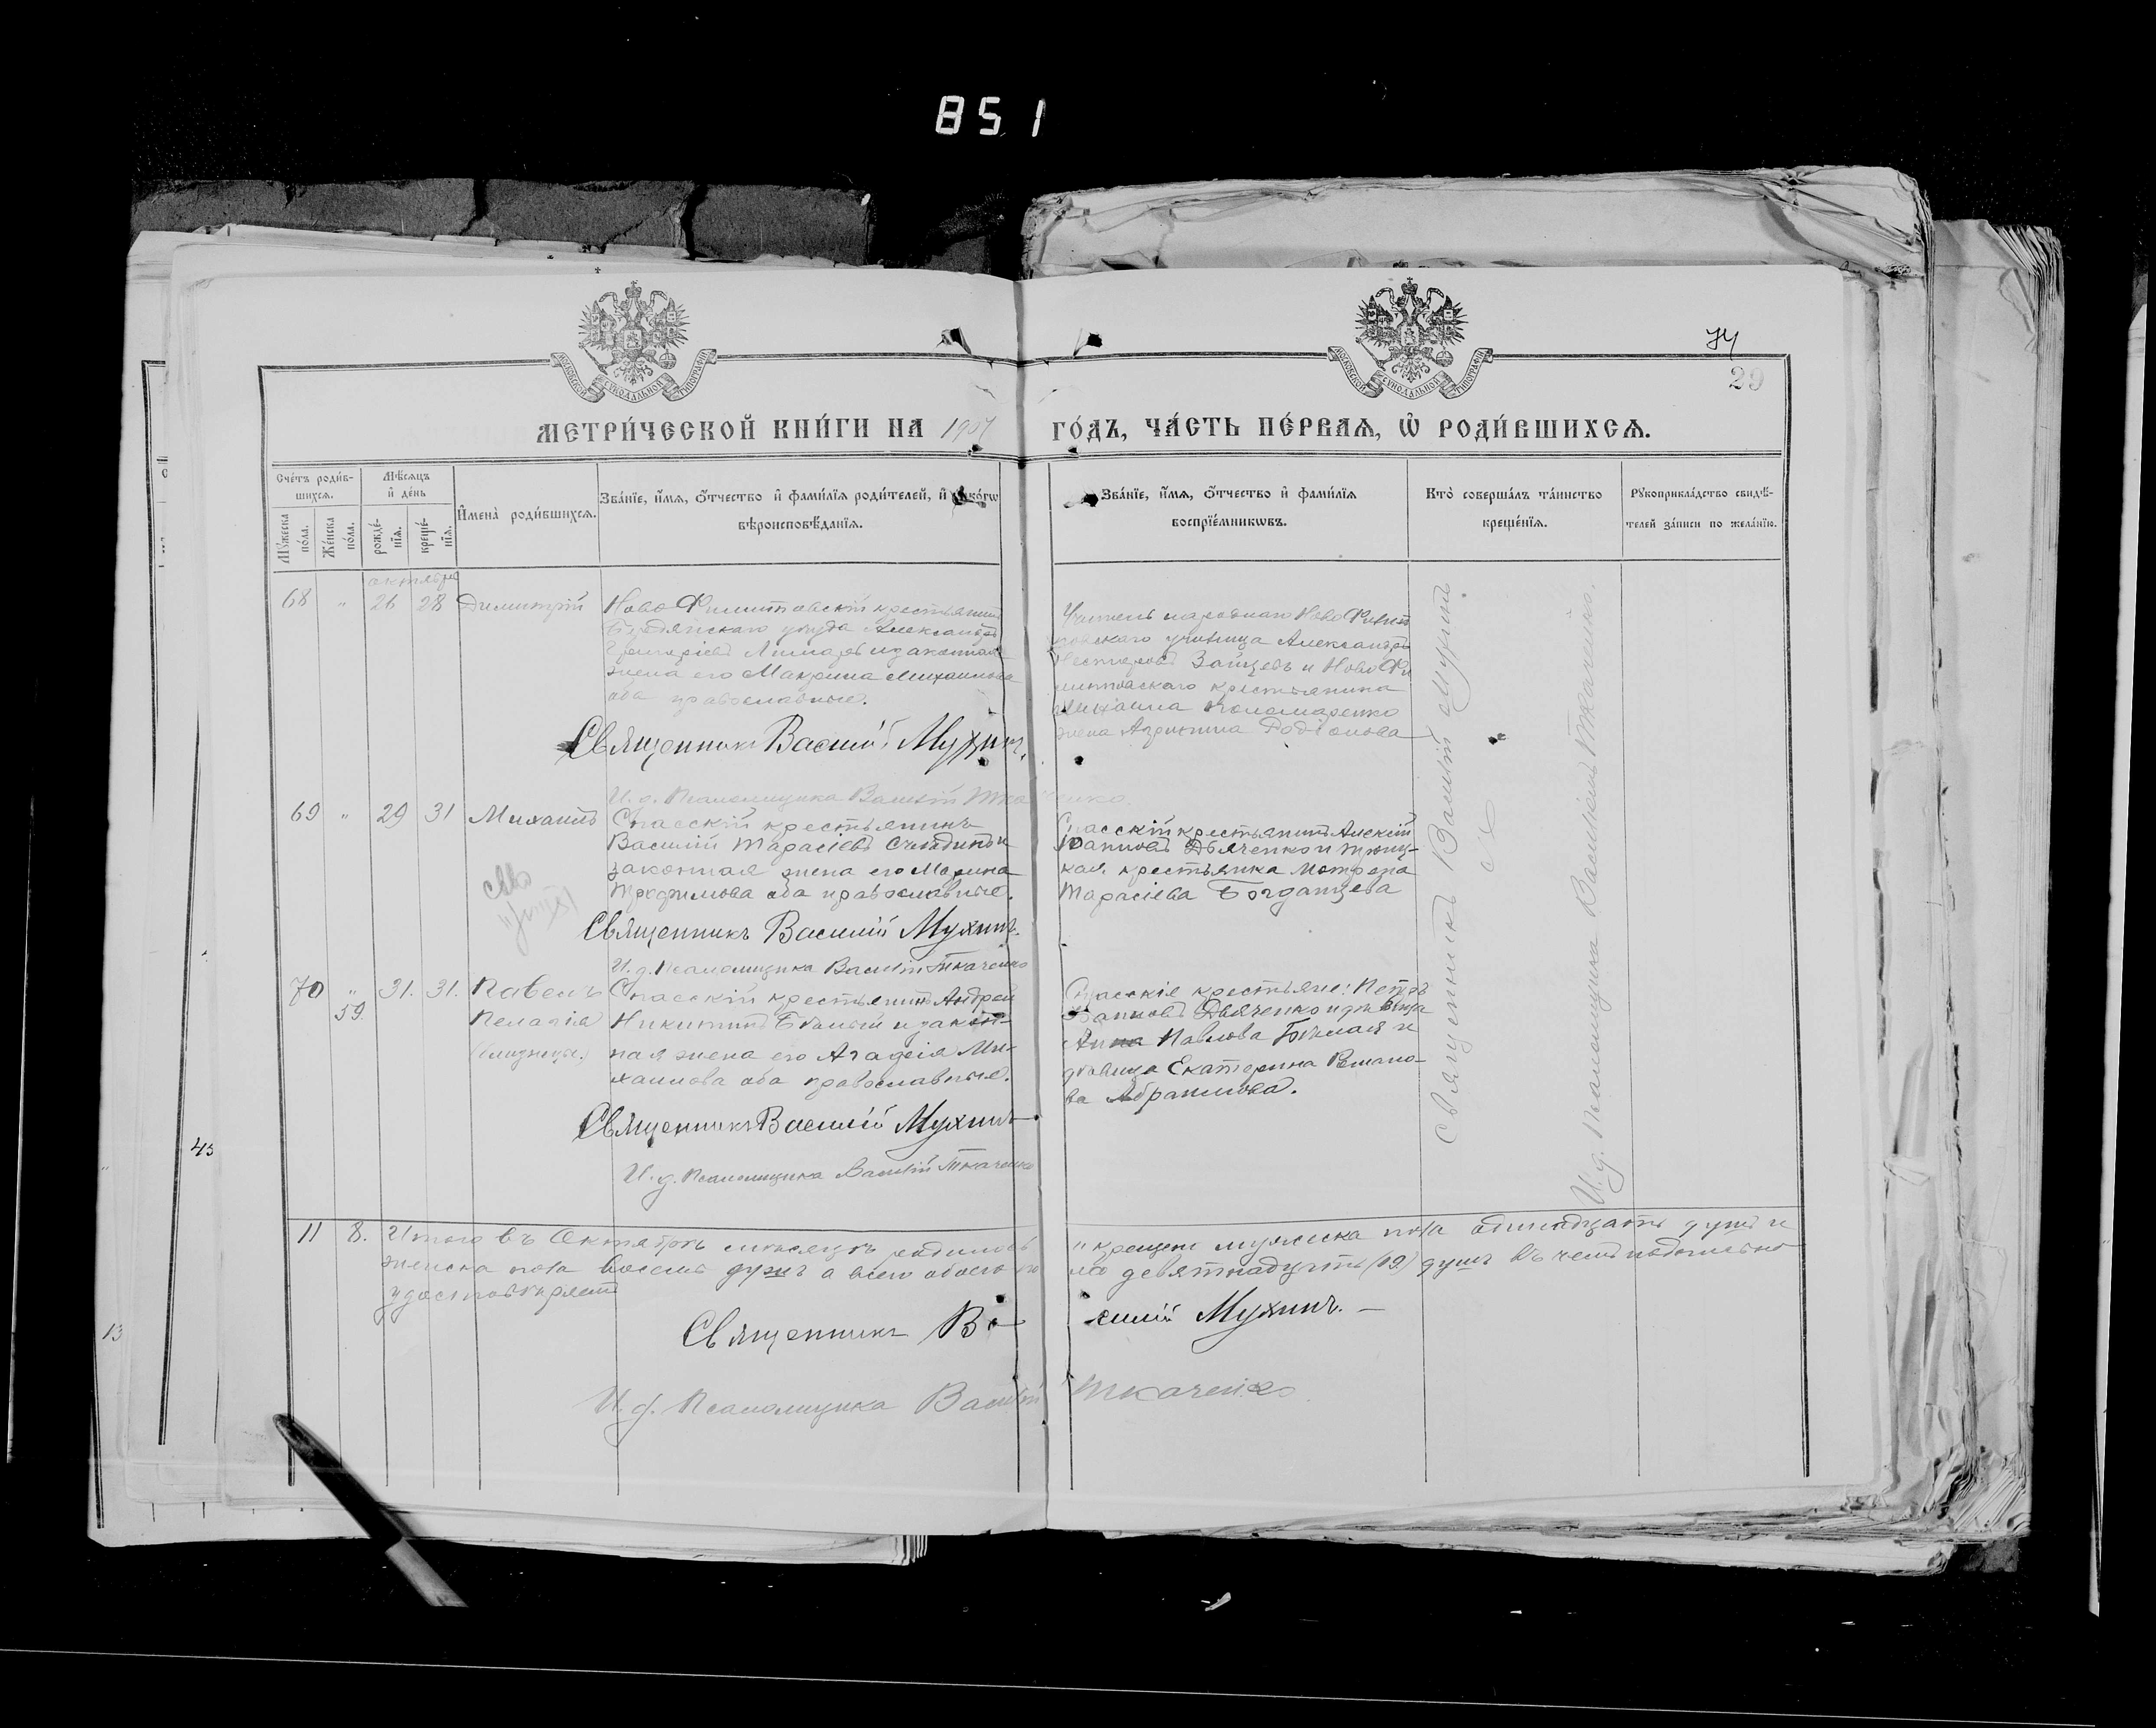 851
74
29
МЕТРИ́ЧЕСКОЙ КНИ́ГИ НА 1907 ГО́ДЪ, ЧА́СТЬ ПЕ́РВАЯ, Ѡ҆ РОДИ́ВШИХСѦ.
Сче́тъ роди́в-
шихсѧ.
Мꙋ́жеска по́ла.
Же́нска по́ла.
Мѣ́сѧцъ
и҆ де́нь
рожде́-
нїѧ.
креще́-
нїѧ.
И҆мена̀ роди́вшихсѧ.
Зва́нїе, и҆́мѧ, ѻ҆́тчество и҆ фами́лїѧ роди́телей, и҆ како́гѡ
вѣроисповѣ́данїѧ.
Зва́нїе, и҆́мѧ, ѻ҆́тчество и҆ фами́лїѧ
воспрїе́мникѡвъ.
Кто̀ соверша́лъ та́инство
креще́нїѧ.
Рꙋкоприкла́дство свидѣ́-
телей за́писи по жела́нїю.
октября
68 " 26 28 Димитрій
Ново Филипповскій крестьянинъ
Бердянскаго уѣзда Александръ
Григоріевъ Лимарь и законная
жена его Макрина Михаилова
оба православные.
Священникъ Василій Мухинъ.
И. д. Псаломщика Василій Ткаченко.
Учитель народнаго Ново Филип
повскаго училища Александръ
Несторовъ Зайцевъ и Ново Фи
липповскаго крестьянина
Михаила Пономаренко
жена Агрипина Родіонова
69 " 29 31 Михаилъ
Спасскій крестьянинъ
Василій Тарасіевъ и
законная жена его Марина
Трофимова оба православные.
Священникъ Василій Мухинъ.
И. д. Псаломщика Василій Ткаченко
Спасскій крестьянинъ Алексій
Іоанновъ Дьяченко и
кая крестьянка Матрона
Тарасіева Богданцева
70 " 31. 31. Павелъ
59. Пелагія
(близнецы.)
Спасскій крестьянинъ Андрей
Никитинъ Бѣлый и закон-
ная жена его Агафія Ми-
хаилова оба православные.
Священникъ Василій Мухинъ
И. д. Псаломщика Василій Ткаченко
Спасскія крестьяне: Петръ
Іоанновъ Дьяченко и дѣвица
Анна Павлова Бѣлая и
дѣвица Екатерина Романо-
ва Абрамова.
Священникъ Василій Мухинъ
И. д. Псаломщика Василій Ткаченко.
11 8. Итого въ Октябрѣ мѣсяцѣ родилось и крещено мужеска пола одинадцать душъ и
женска пола восемь душъ а всего обоего по ла девятнадцать (19) душъ въ чемъ подписью
удостовѣряемъ
Священникъ Василій Мухинъ. —
И. д. Псаломщика Василій Ткаченко.
43
13